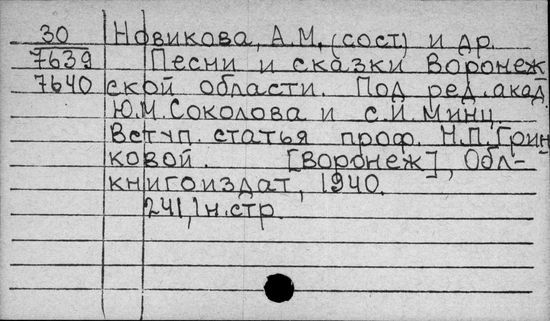 30 Новикова, А.М. (сост) и др.
7639 Песни и сказки Воронеж-
7640 ской области. Под ред. акад.
Ю.М. Соколова и С.И. Минц.
Вступ. статья проф. Н.П. Грин-
ковой. [Воронеж], Обл-
книгоиздат, 1940.
241, 1 н. стр.